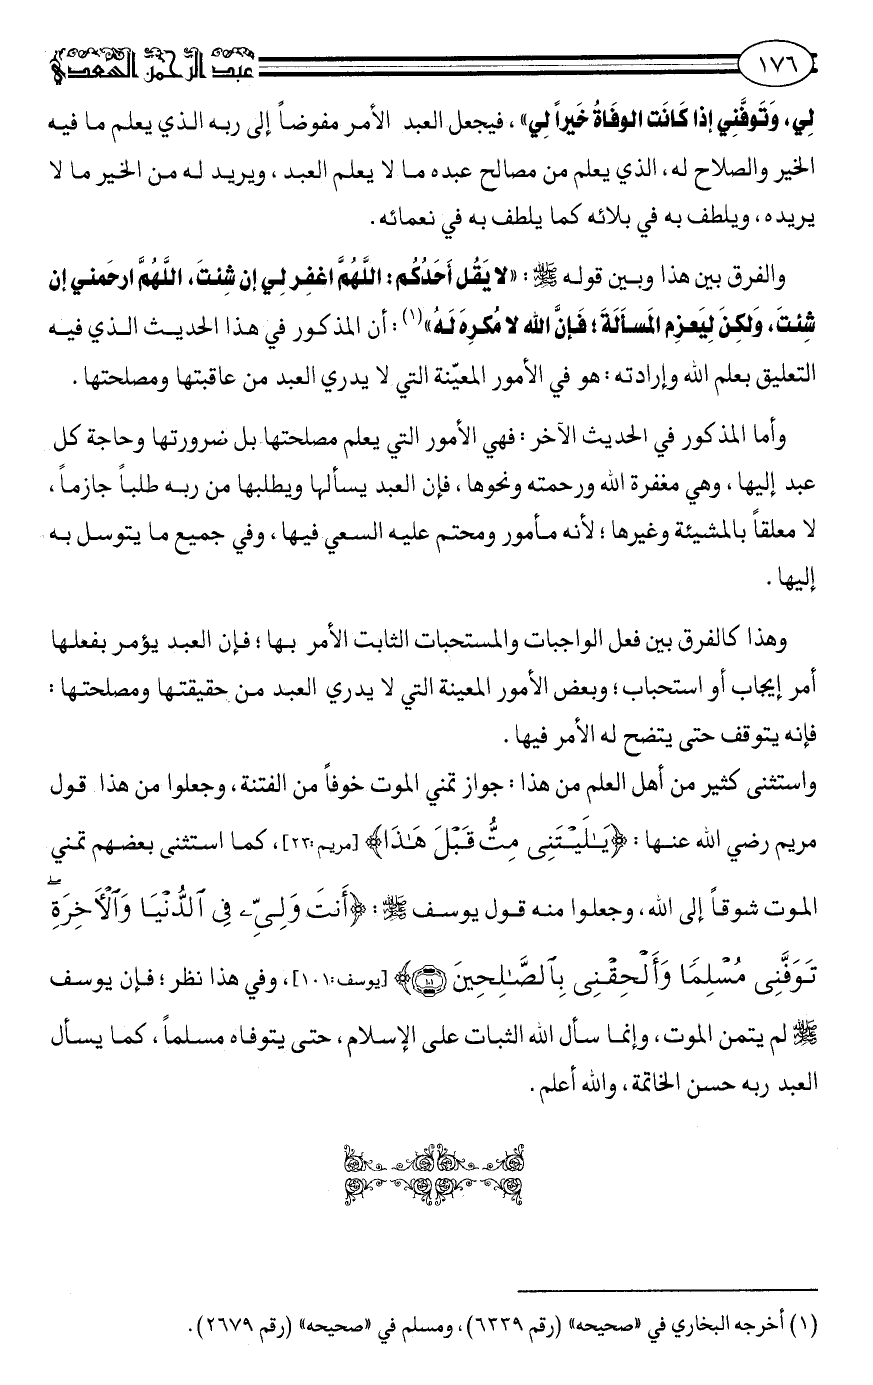 ١٧٦
عبد الرحمن السعدي
لِي، وَتَوَفَّنِي إذَا كَانَت الوفَاةُ خَيراً لِي»، فيجعل العبد الأمر مفوضاً إلى ربه الذي يعلم ما فيه
الخير والصلاح له، الذي يعلم من مصالح عبده ما لا يعلم العبد، ويريد له من الخير ما لا
يريده، ويلطف به في بلائه كما يلطف به في نعمائه.
والفرق بين هذا وبين قوله ﷺ: «لا يَقُل أَحَدُكُم: اللَّهُمَّ اغفِر لِي إن شِئتَ، اللَّهُمَّ ارحَمنِي إن
شِئتَ، وَلكِنَ لِيَعزِم المَسأَلَةَ؛ فَإنَّ الله لا مُكرِهَ لَهُ»(١): أن المذكور في هذا الحديث الذي فيه
التعليق بعلم الله وإرادته: هو في الأمور المعيّنة التي لا يدري العبد من عاقبتها ومصلحتها.
وأما المذكور في الحديث الآخر: فهي الأمور التي يعلم مصلحتها بل ضرورتها وحاجة كل
عبد إليها، وهي مغفرة الله ورحمته ونحوها، فإن العبد يسألها ويطلبها من ربه طلباً جازماً،
لا معلقاً بالمشيئة وغيرها؛ لأنه مأمور ومحتم عليه السعي فيها، وفي جميع ما يتوسل به
إليها.
وهذا كالفرق بين فعل الواجبات والمستحبات الثابت الأمر بها؛ فإن العبد يؤمر بفعلها
أمر إيجاب أو استحباب؛ وبعض الأمور المعينة التي لا يدري العبد من حقيقتها ومصلحتها:
فإنه يتوقف حتى يتضح له الأمر فيها.
واستثنى كثير من أهل العلم من هذا: جواز تمني الموت خوفاً من الفتنة، وجعلوا من هذا قول
مريم رضي الله عنها: ﴿يَـٰلَيْتَنِى مِتُّ قَبْلَ هَـٰذَا﴾ [مريم:٢٣]، كما استثنى بعضهم تمني
الموت شوقاً إلى الله، وجعلوا منه قول يوسف ﷺ: ﴿أَنتَ وَلِىِّۦ فِى ٱلدُّنْيَا وَٱلْـَٔاخِرَةِ ۖ
تَوَفَّنِى مُسْلِمًا وَأَلْحِقْنِى بِٱلصَّـٰلِحِينَ ﴿١٠١﴾﴾ [يوسف:١٠١]، وفي هذا نظر؛ فإن يوسف
ﷺ لم يتمن الموت، وإنما سأل الله الثبات على الإسلام، حتى يتوفاه مسلماً، كما يسأل
العبد ربه حسن الخاتمة، والله أعلم.
(١) أخرجه البخاري في «صحيحه» (رقم ٦٣٣٩)، ومسلم في «صحيحه» (رقم ٢٦٧٩).